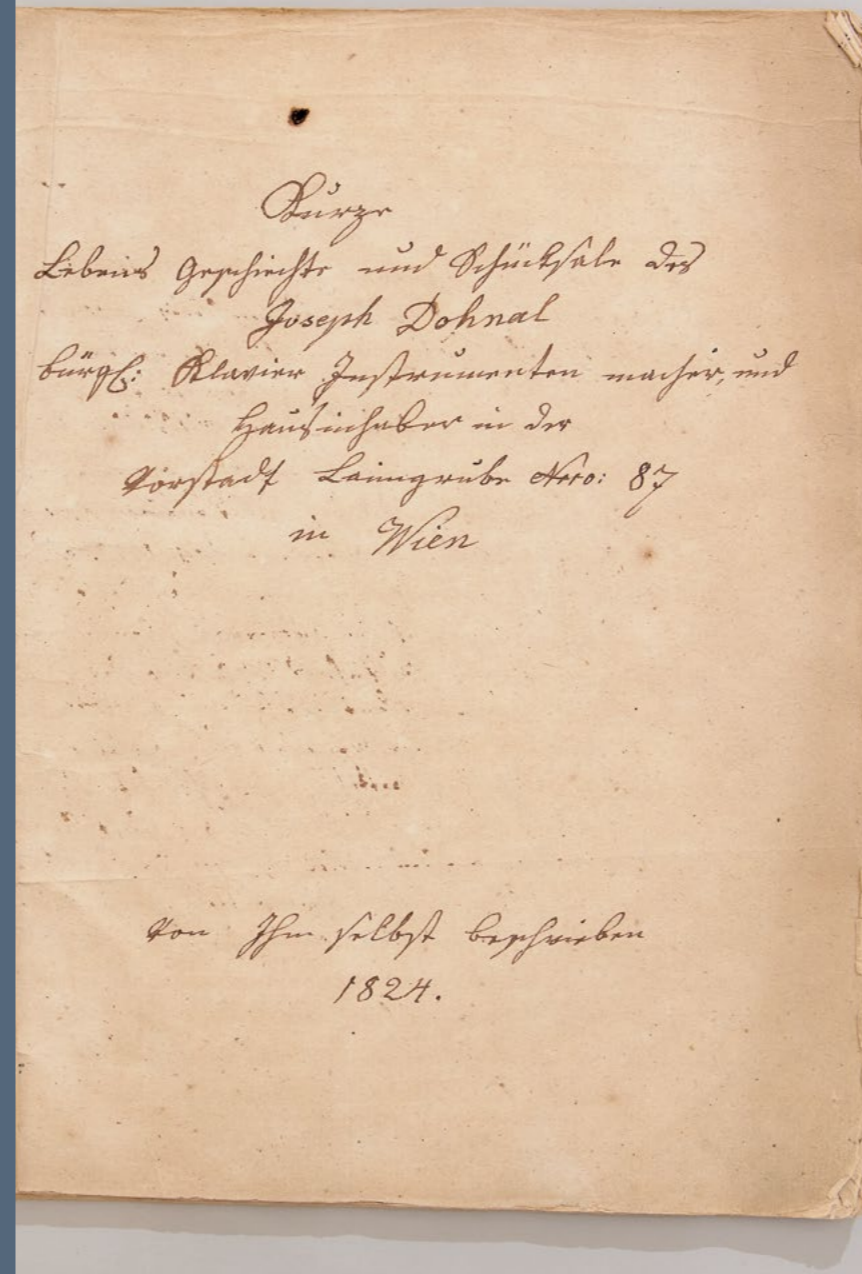 Kurze
Lebens Geschichte und Schücksale des
Joseph Dohnal
bürgl: Klavier Instrumenten macher, und
Hausinhaber in der
Vorstadt Laimgrube Nro: 87
in Wien
Von Ihm selbst beschrieben
1824.